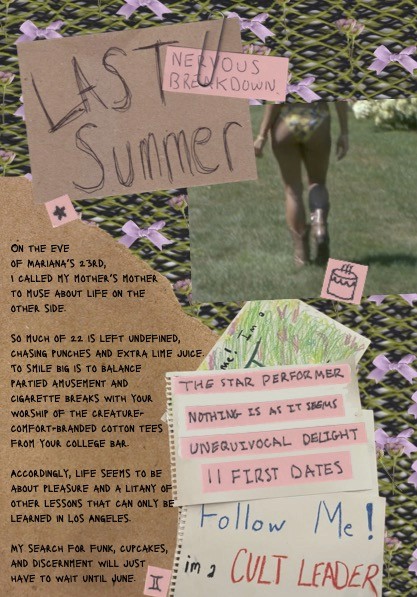 LAST
Summer
NERVOUS
BREAKDOWN.
ON THE EVE
OF MARIANA'S 23RD,
I CALLED MY MOTHER'S MOTHER
TO MUSE ABOUT LIFE ON THE
OTHER SIDE.
SO MUCH OF 22 IS LEFT UNDEFINED,
CHASING PUNCHES AND EXTRA LIME JUICE.
TO SMILE BIG IS TO BALANCE
PARTIED AMUSEMENT AND
CIGARETTE BREAKS WITH YOUR
WORSHIP OF THE CREATURE-
COMFORT-BRANDED COTTON TEES
FROM YOUR COLLEGE BAR.
ACCORDINGLY, LIFE SEEMS TO BE
ABOUT PLEASURE AND A LITANY OF
OTHER LESSONS THAT CAN ONLY BE
LEARNED IN LOS ANGELES.
MY SEARCH FOR FUNK, CUPCAKES,
AND DISCERNMENT WILL JUST
HAVE TO WAIT UNTIL JUNE.
me! I'm a
THE STAR PERFORMER
NOTHING IS AS IT SEEMS
UNEQUIVOCAL DELIGHT
11 FIRST DATES
Follow Me!
im a CULT LEADER